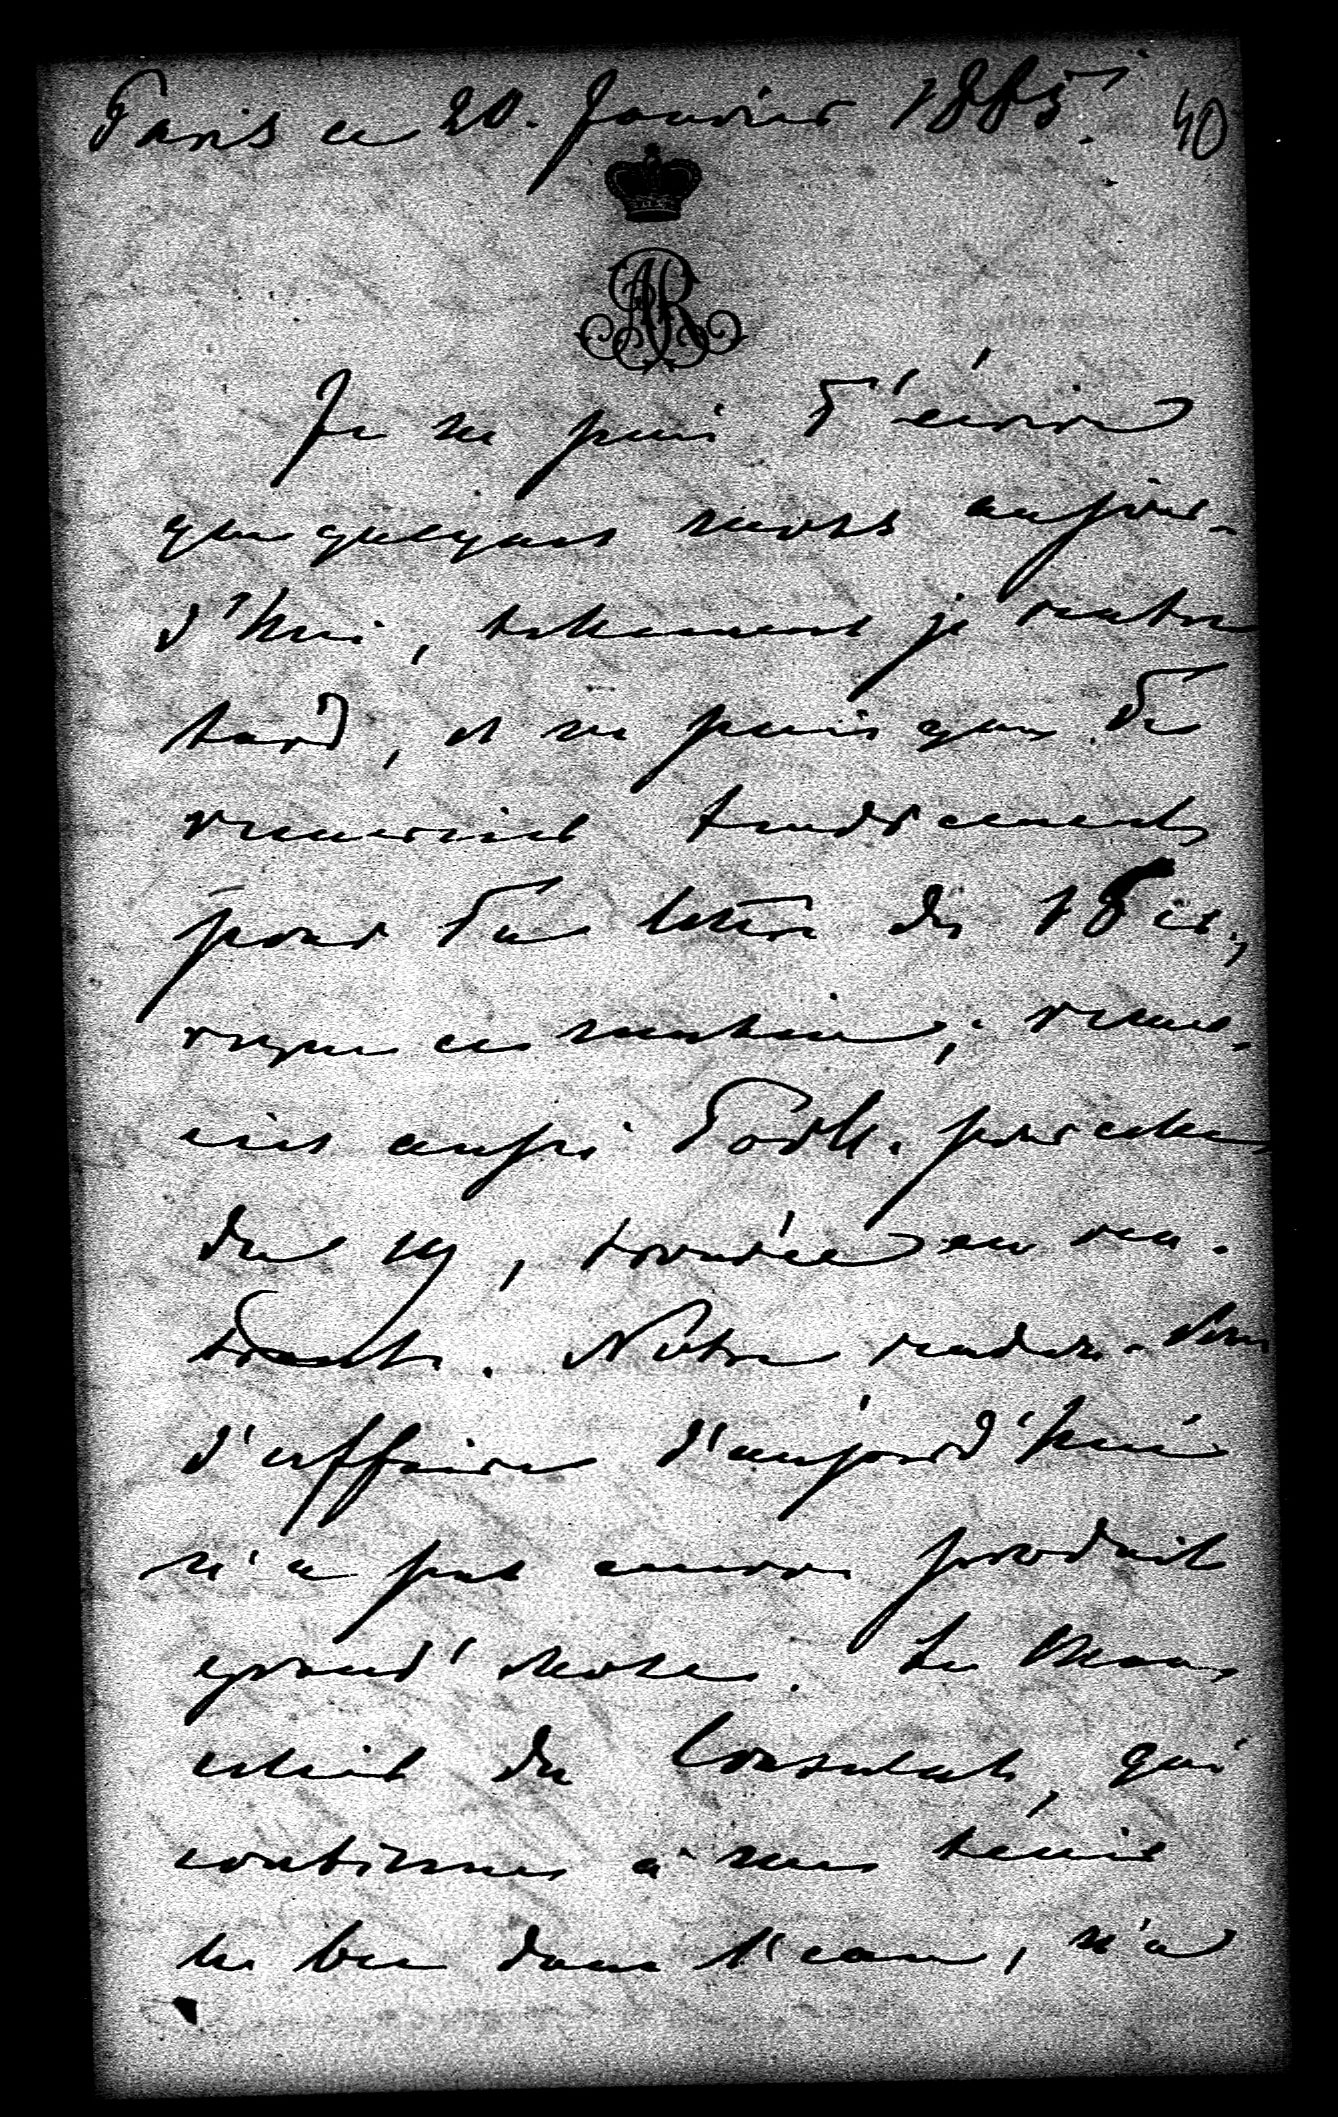 Paris ce 20. Janvier 1885. 40
AR
Je ne puis T'écrire
que quelques mots aujour-
d'hui, tellement je rentre
tard, et ne puis que Te
remercier tendrement
pour Ta lettre du 18 ct.,
reçue ce matin; remer-
cies aussi Dodll. pour celle
du 19, trouvée en ren-
trant. Notre rendez-vous
d'affaire d'aujourd'hui
n'a pas encore produit
grand'chose. Le
du Consulat, qui
continue à nous tenir
le bec dans l'eau, n'a